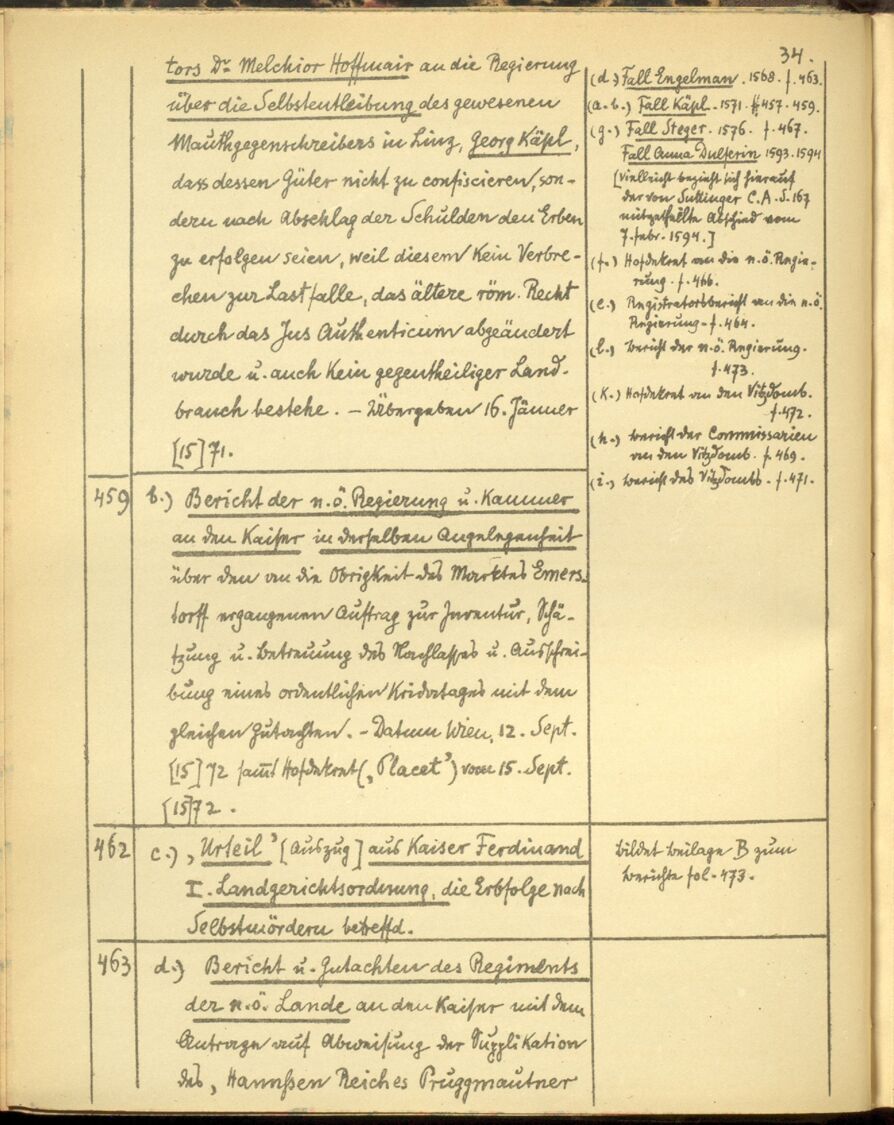 34.
tors Dr Melchior Hoffmair an die Regierung
über die Selbstentleibung des gewesenen
Mauthgegenschreibers in Linz, Georg Käpl,
dass dessen Güter nicht zu confiscieren, son-
dern nach Abschlag der Schulden den Erben
zu erfolgen seien, weil diesem kein Verbre-
chen zur Last falle, das ältere röm. Recht
durch das Jus Authenticum abgeändert
wurde u. auch kein gegentheiliger Land-
brauch bestehe. – Übergeben 16. Jänner
[15]71.
(d.) Fall Engelman. 1568. f. 463.
(a.b.) Fall Käpl. 1571. ff 457. 459.
(g.) Fall Steger. 1576. f. 467.
Fall Anna Dulserin 1593. 1594
[Vielleicht bezieht sich hierauf
der von Suttinger C.A. S. 167
mitgetheilte Abschied vom
7. febr. 1594.]
(f.) Hofdekret an die n.ö. Regie-
rung. f. 466.
(e.) Registratorsbericht an die n.ö.
Regierung f. 464.
(l.) Bericht der n.ö. Regierung.
f. 473.
(k.) Hofdekret an den Vitzdomb.
f. 472.
(h.) Bericht der Commissarien
an den Vitzdomb. f. 469.
(i.) Bericht des Vitzdombs. f. 471.
459 b.) Bericht der n.ö. Regierung u. Kammer
an den Kaiser in derselben Angelegenheit
über den an die Obrigkeit des Marktes Emers-
dorff ergangenen Auftrag zur Inventur, Schä-
tzung u. Betreuung des Nachlasses u. Ausschrei-
bung eines ordentlichen Kridatages mit dem
gleichen Gutachten. – Datum Wien, 12. Sept.
[15]72 samt Hofdekret („Placet“) vom 15. Sept.
[15]72.
462 c.) „Urteil“ [Auszug] aus Kaiser Ferdinand
I. Landgerichtsordnung, die Erbfolge nach
Selbstmördern betreffd.
Bildet Beilage B zum
Berichte fol. 473.
463 d.) Bericht u. Gutachten des Regiments
der n.ö. Lande an den Kaiser mit dem
Antrage auf Abweisung der Supplikation
des „Hannßen Reiches Pruggmautner